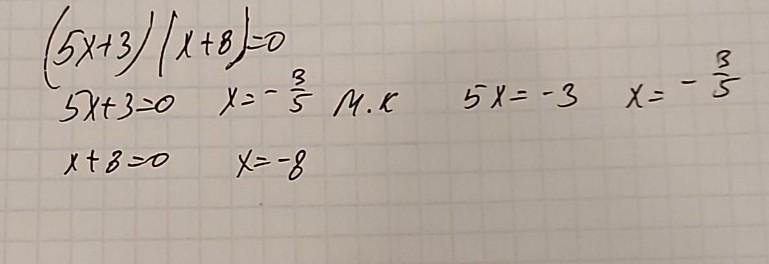 (5x+3)(x+8)=0
5x+3=0 x=-3/5 м.к 5x=-3 x=-3/5
x+8=0 x=-8